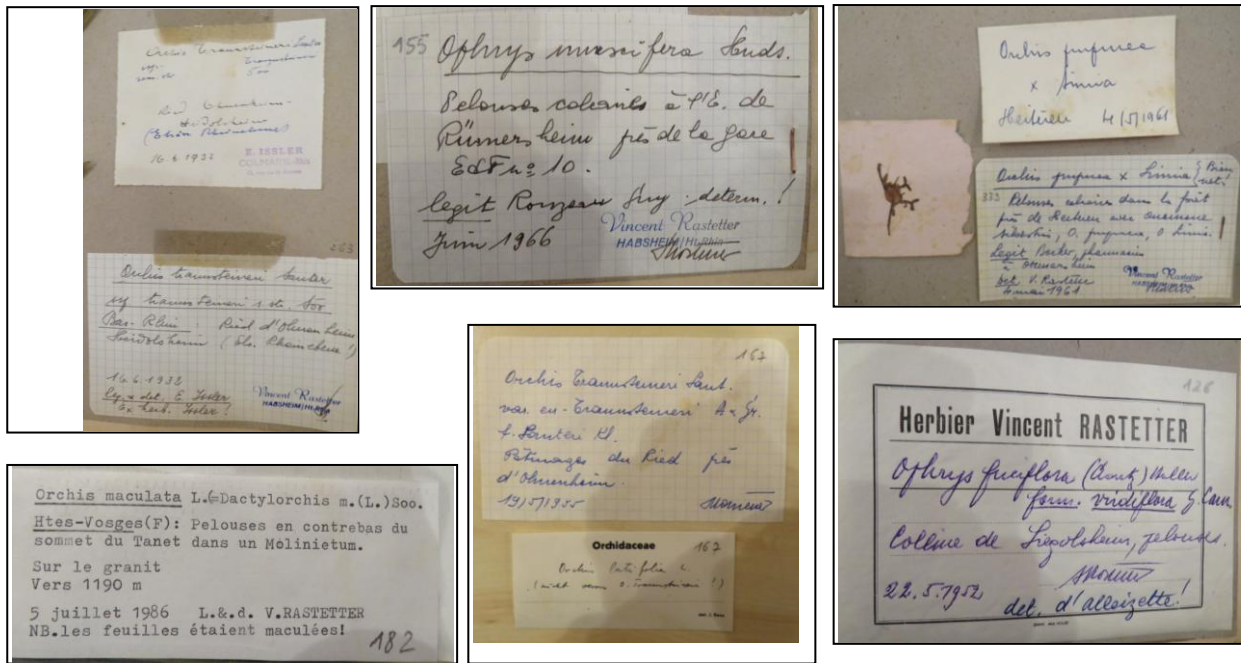 Orchis Traunsteineri Sauter
ssp. Traunsteineri
sens. str. Soó
Ried Ohnenheim-
Heidolsheim
16.6.1933
E. ISSLER
COLMAR
263
Orchis traunsteineri Sauter
ssp traunsteineri s. str. Soó
Bas-Rhin Ried d'Ohnenheim
Heidolsheim
16.6.1933
Leg & det. E. Issler
Ex herb. Issler !
Vincent Rastetter
HABSHEIM/Ht-Rhin
155
Ophrys muscifera Huds.
Pelouses calcaires à l'E. de
Rümersheim près de la gare
EdF nº 10.
legit Rouzeau Guy determ. !
Juin 1966
Vincent Rastetter
HABSHEIM/Ht-Rhin
Orchis purpurea
x simia
Heiteren 4/5/1961
Orchis purpurea x Simia
333 Pelouses calcaires dans la forêt
près de Heiteren avec anemone
silvestris, O. purpurea, O simia.
Legit pharmacien
à Ottmarsheim
det V. Rastetter
4 mai 1961
Vincent Rastetter
HABSHEIM/Ht-Rhin
Orchis maculata L.(=Dactylorchis m.(L.)Soo.
Htes-Vosges(F): Pelouses en contrebas du
sommet du Tanet dans un Molinietum.
Sur le granit
Vers 1190 m
5 juillet 1986 L.&.d. V.RASTETTER
NB.les feuilles étaient maculées!
182
167
Orchis Traunsteineri Saut.
var. eu-Traunsteineri A & Gr.
f. Sauteri Kl.
Pâturages du Ried près
d'Ohnenheim.
19/5/1955
Orchidaceae 167
Orchis latifolia L.
(nicht O. Traunsteineri !)
126
Herbier Vincent RASTETTER
Ophrys fuciflora (Crantz) Haller
form. viridiflora G. Cam
Colline de Sigolsheim, pelouses.
22.5.1952
det. d'Alleizette!